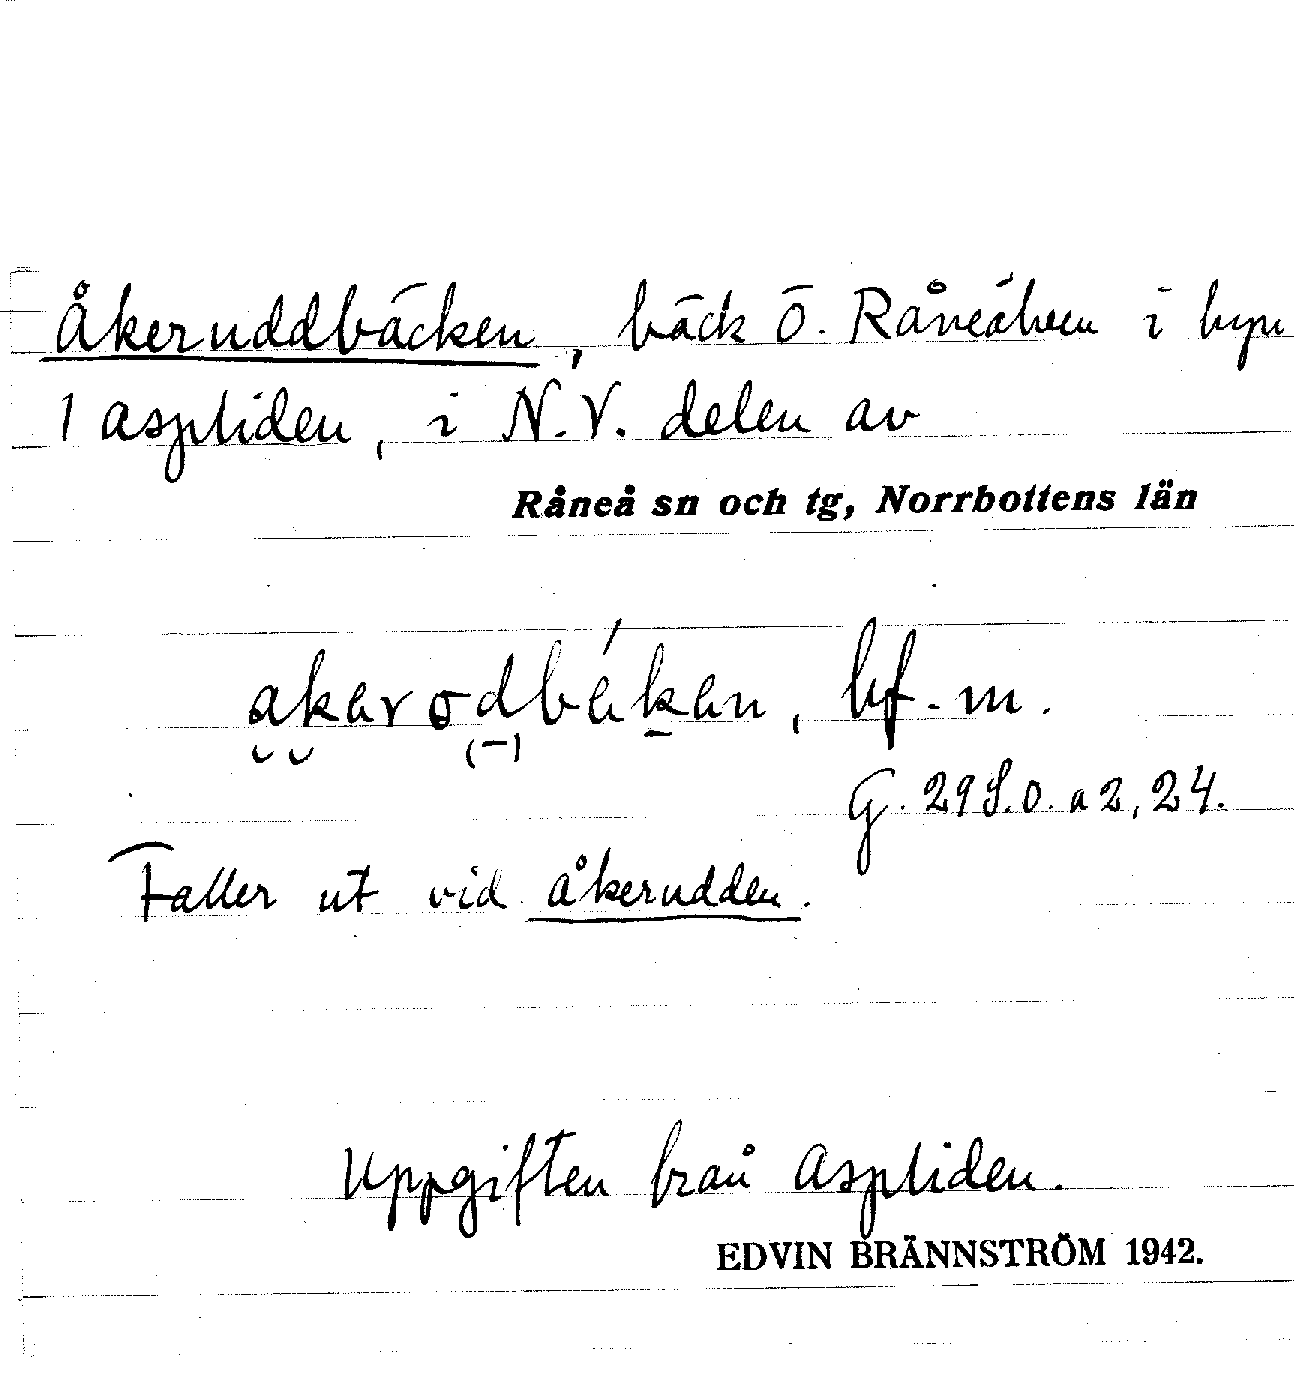 Åkeruddbäcken, bäck ö. Råneälven i byn
1 Aspliden, i N.V. delen av
Råneå sn och tg, Norrbottens län
akarodbékan, bf. m.
(-)
G. 29 S.O. a 2, 24.
Faller ut vid Åkerudden.
Uppgiften från Aspliden.
EDVIN BRÄNNSTRÖM 1942.